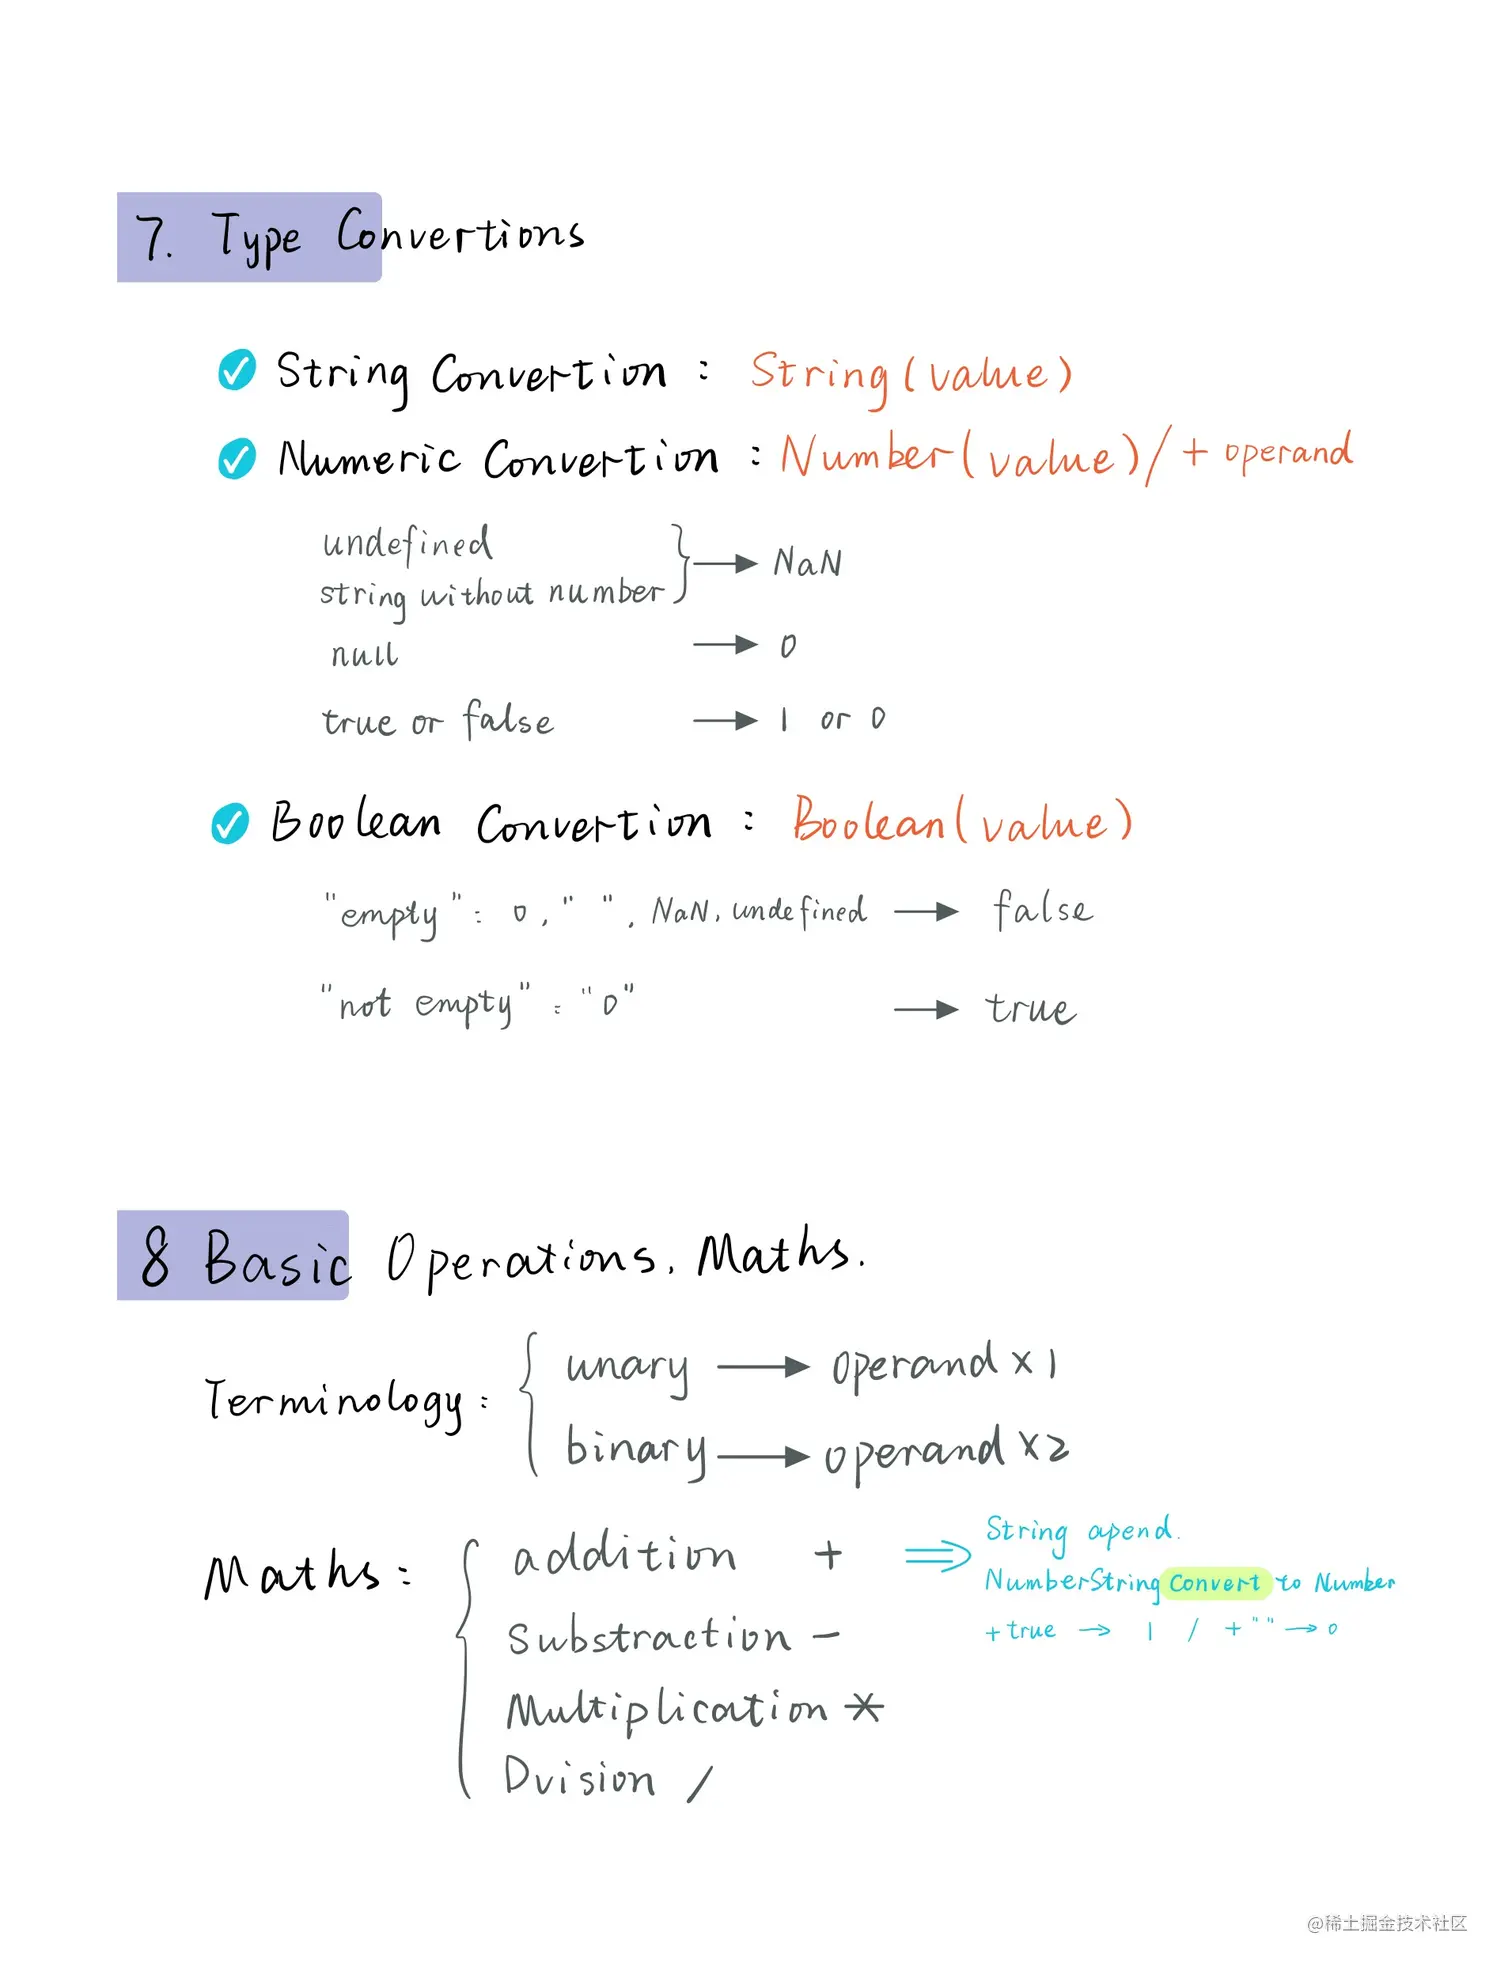 7. Type Convertions
String Convertion : String(value)
Numeric Convertion : Number(value) / + operand
undefined
string without number → NaN
null → 0
true or false → 1 or 0
Boolean Convertion : Boolean(value)
"empty" : 0, " ", NaN, undefined → false
"not empty" : "0" → true
8 Basic Operations, Maths.
Terminology : unary → operand x 1
binary → operand x2
Maths : addition + ⇒ String apend.
NumberString Convert to Number
+true → 1 / + "" → 0
Substraction -
Multiplication *
Dvision /
@稀土掘金技术社区